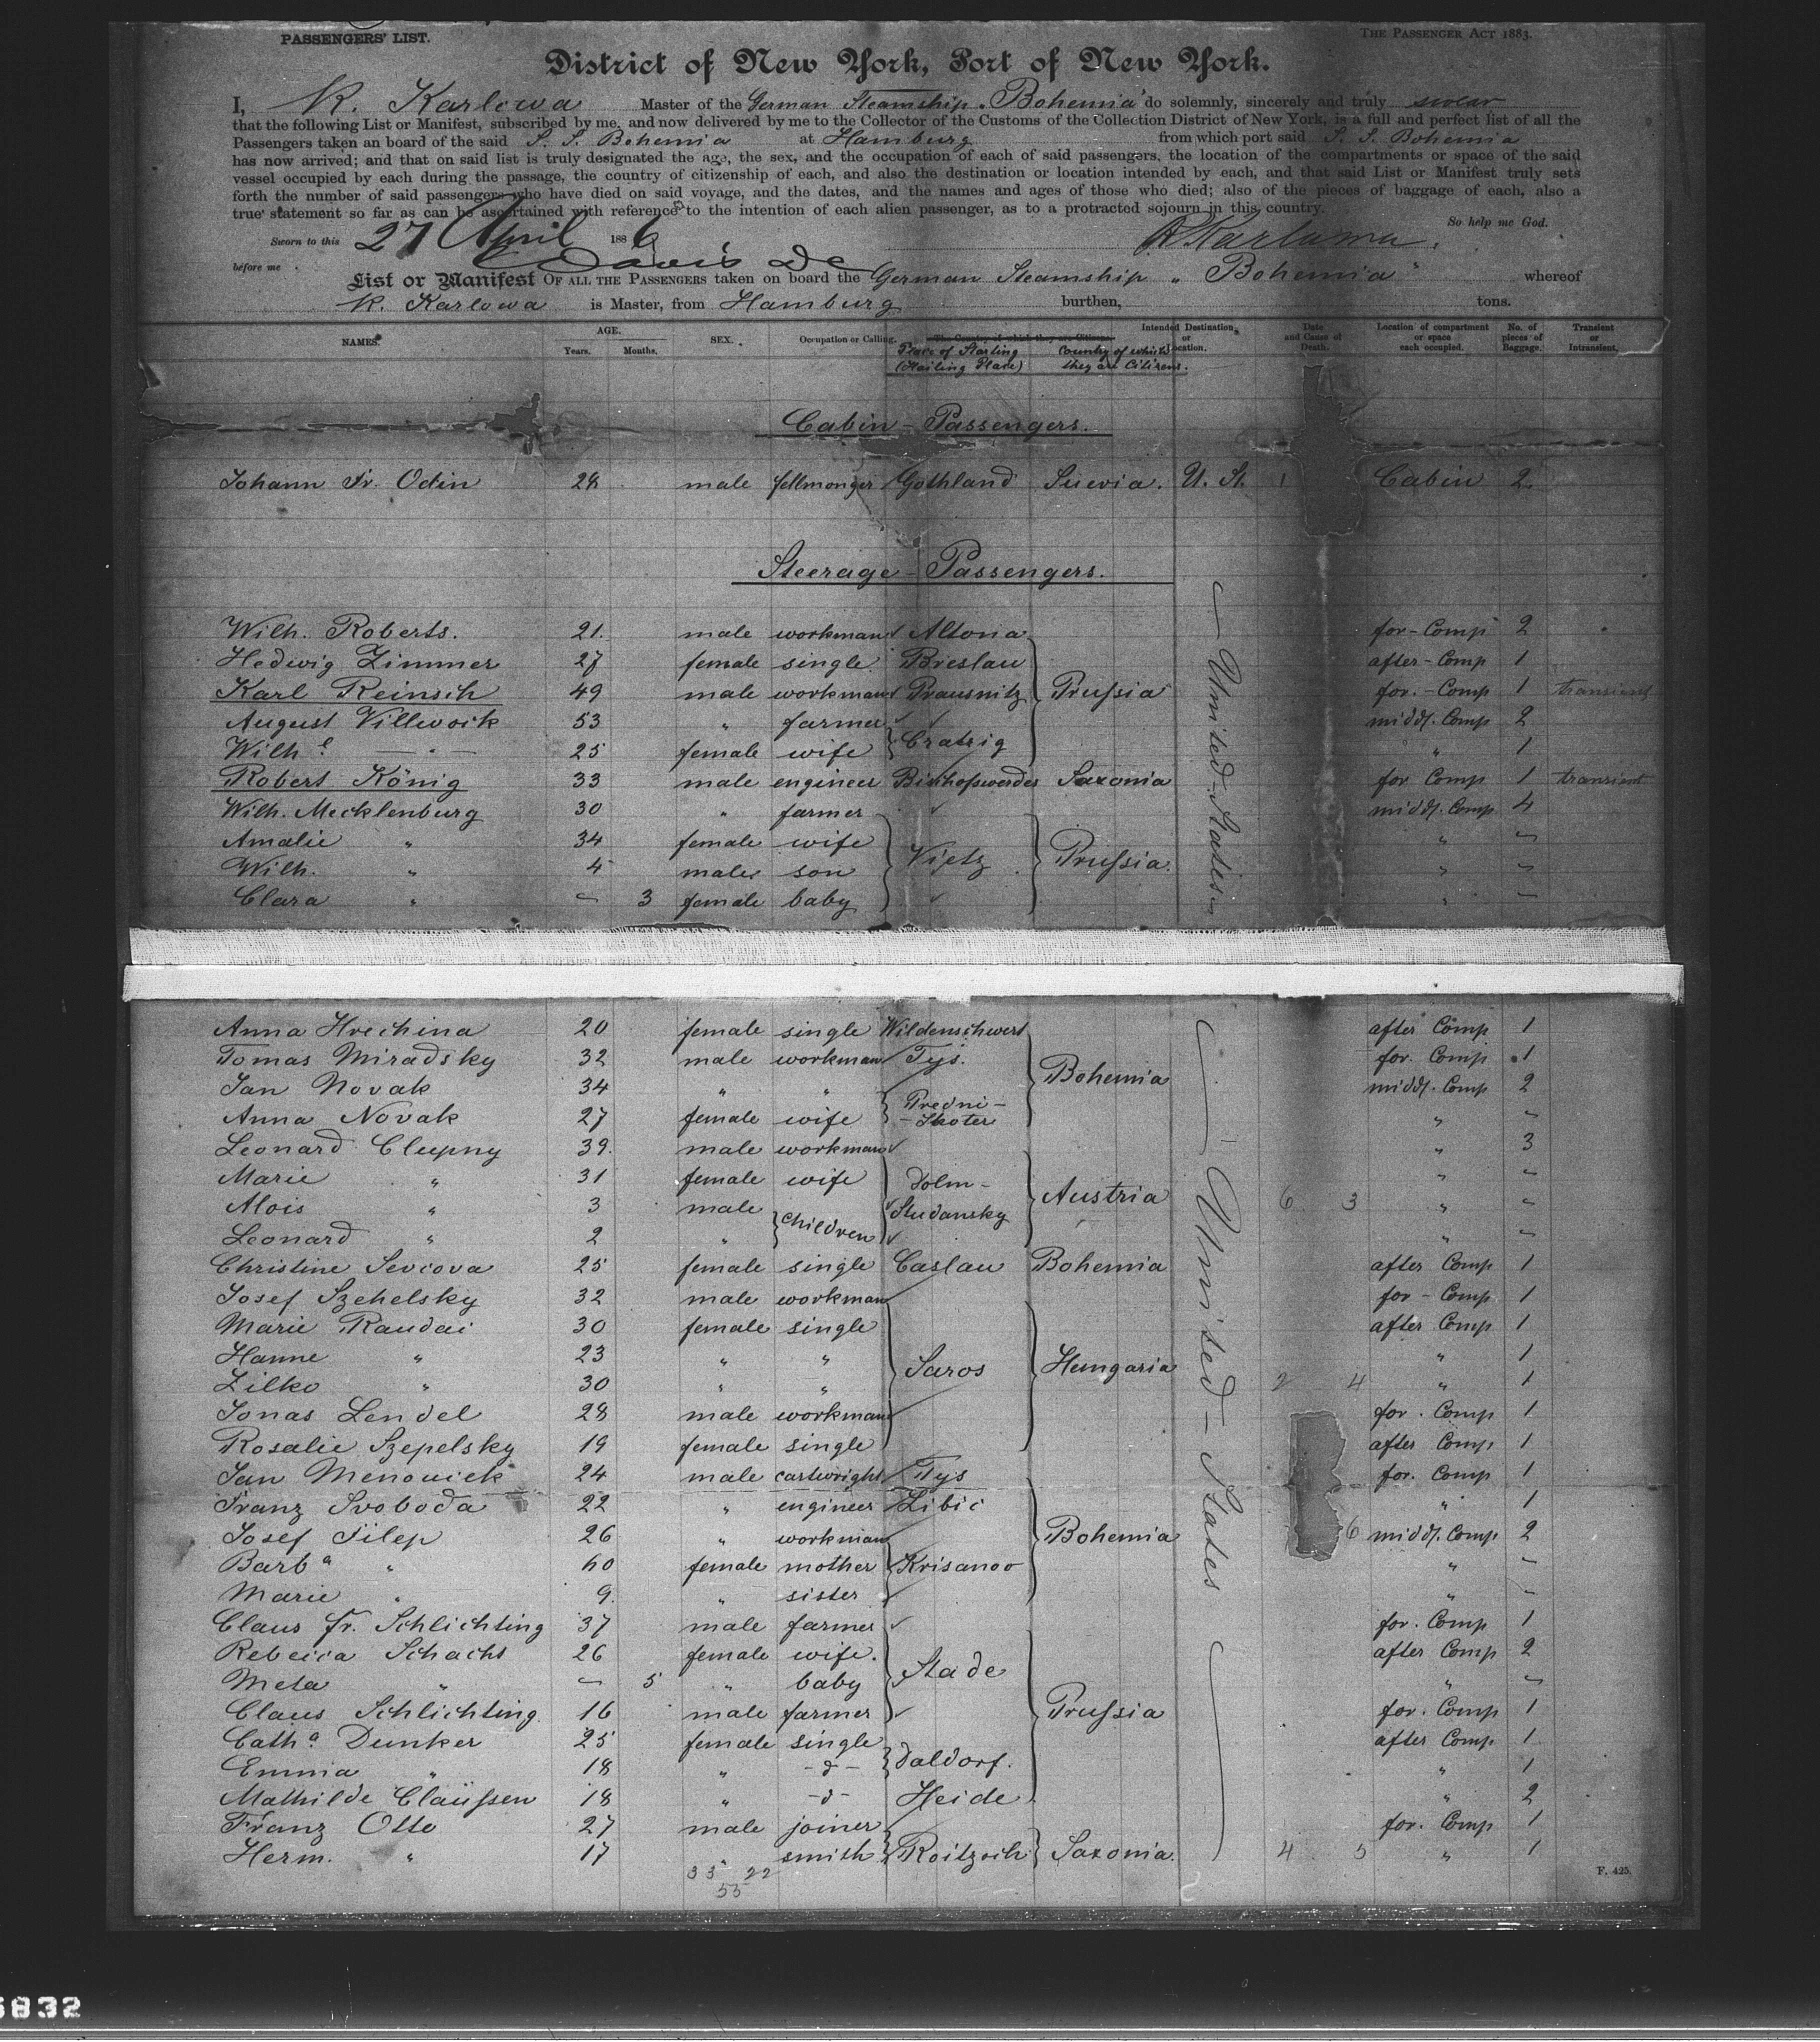 PASSENGERS' LIST.
THE PASSENGER ACT 1883.
District of New York, Port of New York.
I, R. Karlowa Master of the German Steamship „Bohemia" do solemnly, sincerely and truly swear
that the following List or Manifest, subscribed by me, and now delivered by me to the Collector of the Customs of the Collection District of New York, is a full and perfect list of all the
Passengers taken an board of the said S. S. Bohemia at Hamburg from which port said S. S. Bohemia
has now arrived; and that on said list is truly designated the age, the sex, and the occupation of each of said passengers, the location of the compartments or space of the said
vessel occupied by each during the passage, the country of citizenship of each, and also the destination or location intended by each, and that said List or Manifest truly sets
forth the number of said passengers who have died on said voyage, and the dates, and the names and ages of those who died; also of the pieces of baggage of each, also a
true statement so far as can be ascertained with reference to the intention of each alien passenger, as to a protracted sojourn in this country.
So help me God.
Sworn to this 27 April 1886 R Karlowa.
before me Davis
List or Manifest OF ALL THE PASSENGERS taken on board the German Steamship „Bohemia" whereof
R. Karlowa is Master, from Hamburg burthen, tons.
NAMES. AGE. Years. Months. SEX. Occupation or Calling. The Country of which they are Citizens. Intended Destination or Location. Date and Cause of Death. Location of compartment or space each occupied. No. of pieces of Baggage. Transient or Intransient.
Place of Starting (Mailing Place) Country of which they are Citizens.
Cabin - Passengers.
Johann Fr. Odin 28 male fellmonger Gothland Suevia. U. St. 1 Cabin 2.
Steerage - Passengers.
Wilh. Roberts. 21. male workman Altona for-Comp 2
Hedwig Zimmer 27 female single Breslau after-Comp 1
Karl Reinsch 49 male workman Prausnitz Prussia for.-Comp 1 transient
August Villwock 53 " farmer middl. Comp 2
Wilh.e — " — 25 female wife Cratzig " 1
Robert König 33 male engineer Bischofswerder Saxonia for Comp 1 transient
Wilh. Mecklenburg 30 " farmer middl. Comp 4
Amalie " 34 female wife " "
Wilh. " 4 male son Vietz Prussia. " "
Clara " - 3 female baby " "
United-States
Anna Hrechina 20 female single Wildenschwert after Comp 1
Tomas Miradsky 32 male workman Tys. for. Comp 1
Jan Novak 34 " " Bohemia middl. Comp 2
Anna Novak 27 female wife Predni-Skoter " "
Leonard Clupny 39. male workman " 3
Marie " 31 female wife Dolm- " "
Alois " 3 male children Studansky Austria 6 3 " "
Leonard " 2 " " "
Christine Sevcova 25 female single Caslau Bohemia after Comp 1
Josef Szehelsky 32 male workman for - Comp 1
Marie Raudai 30 female single after Comp 1
Hanne " 23 " " Saros Hungaria " 1
Zilko " 30 " " 2 4 " 1
Jonas Lendel 28 male workman for. Comp 1
Rosalie Szepelsky 19 female single after Comp 1
Jan Menouick 24 male cartwright Tys for. Comp 1
Franz Svoboda 22 " engineer Libic " 1
Josef Filep 26 " workman Bohemia 6 middl. Comp 2
Barba " 60 female mother Krisanoo " "
Marie " 9. " sister " "
Claus Fr. Schlichting 37 male farmer for. Comp 1
Rebecca Schacht 26 female wife. after Comp 2
Meta " - 5 " baby Stade " "
Claus Schlichting 16 male farmer Prussia for. Comp 1
Catha. Dunker 25 female single after Comp 1
Emma " 18 " -d- Daldorf. " 1
Mathilde Claüssen 18 " -d- Heide " 2
Franz Otto 27 male joiner for. Comp 1
Herm. " 17 " smith Roitzsch Saxonia. 4 5 " 1
United-States
33 22
55
F. 425.
5832